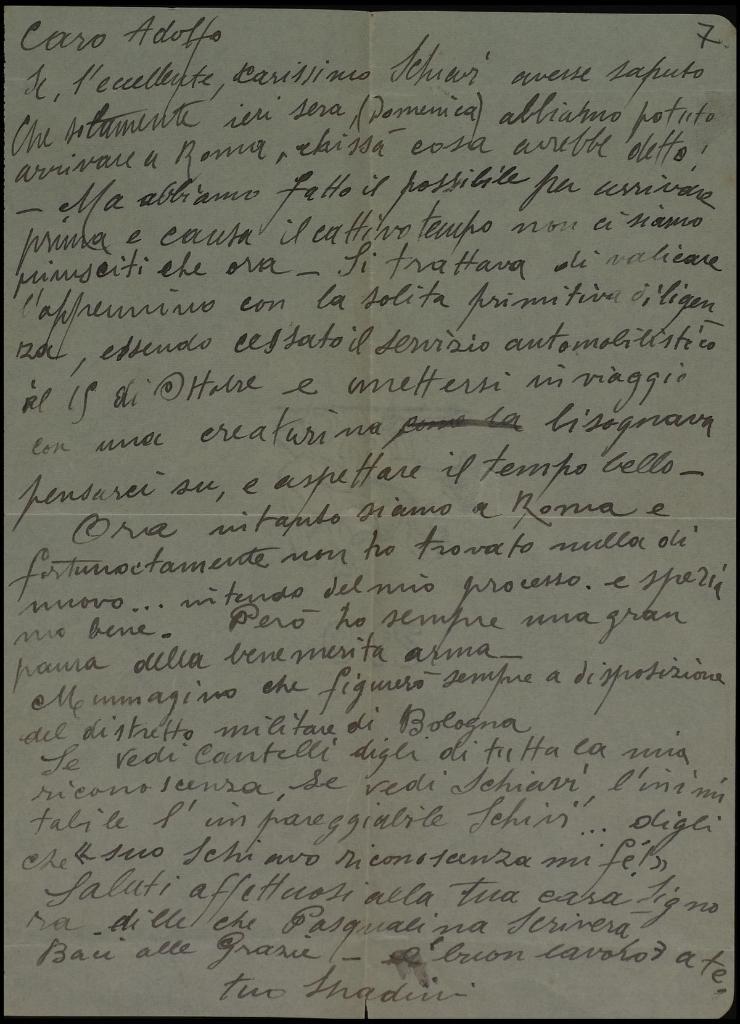 7
Caro Adolfo
Se, l'eccellente, carissimo Schiavi avesse saputo
che solamente ieri sera, (Domenica) abbiamo potuto
arrivare a Roma, chissà cosa avrebbe detto!
— Ma abbiamo fatto il possibile per arrivare
prima e causa il cattivo tempo non ci siamo
riusciti che ora — Si trattava di valicare
l'appennino con la solita primitiva diligen
za, essendo cessato il servizio automobilistico
il 15 di Ottobre e mettersi in viaggio
con una creaturina come la bisognava
pensarci su, e aspettare il tempo bello —
Ora intanto siamo a Roma e
fortunatamente non ho trovato nulla di
nuovo... intendo del mio processo. e speria
mo bene. Però ho sempre una gran
paura della benemerita arma —
M'immagino che figurerò sempre a disposizione
del distretto militare di Bologna
Se vedi Cantelli digli di tutta la mia
riconoscenza, se vedi Schiavi, l'inimi
tabile l'impareggiabile Schivi... digli
che « suo schiavo riconoscenza mi fé! »
Saluti affettuosi alla tua cara Signo
ra dille che Pasqualina scriverà
Baci alle Grazie — buon lavoro a te.
tuo Spadini